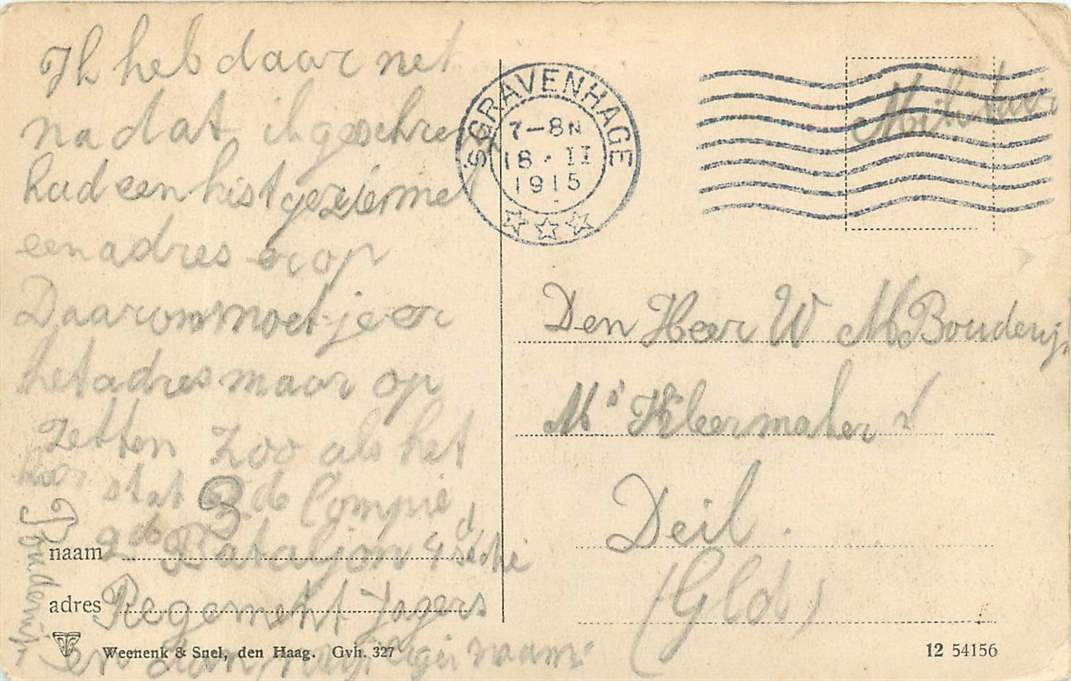 Ik heb daar net
na dat ik geschre
had een kist gezien met
een adres er op
Daarom moet je er
het adres maar op
zetten zoo als het
hier staat 3 de Compie
2de Bataljon 4de sectie
Regement Jagers
en dan mijn naam
Bouderij
S GRAVENHAGE
7-8N
18·II
1915
Militair
Den Heer W M Bouderij
Mr Kleermaker
Deil.
(Gld)
naam
adres
Weenenk & Snel, den Haag. Gvh. 327
12 54156